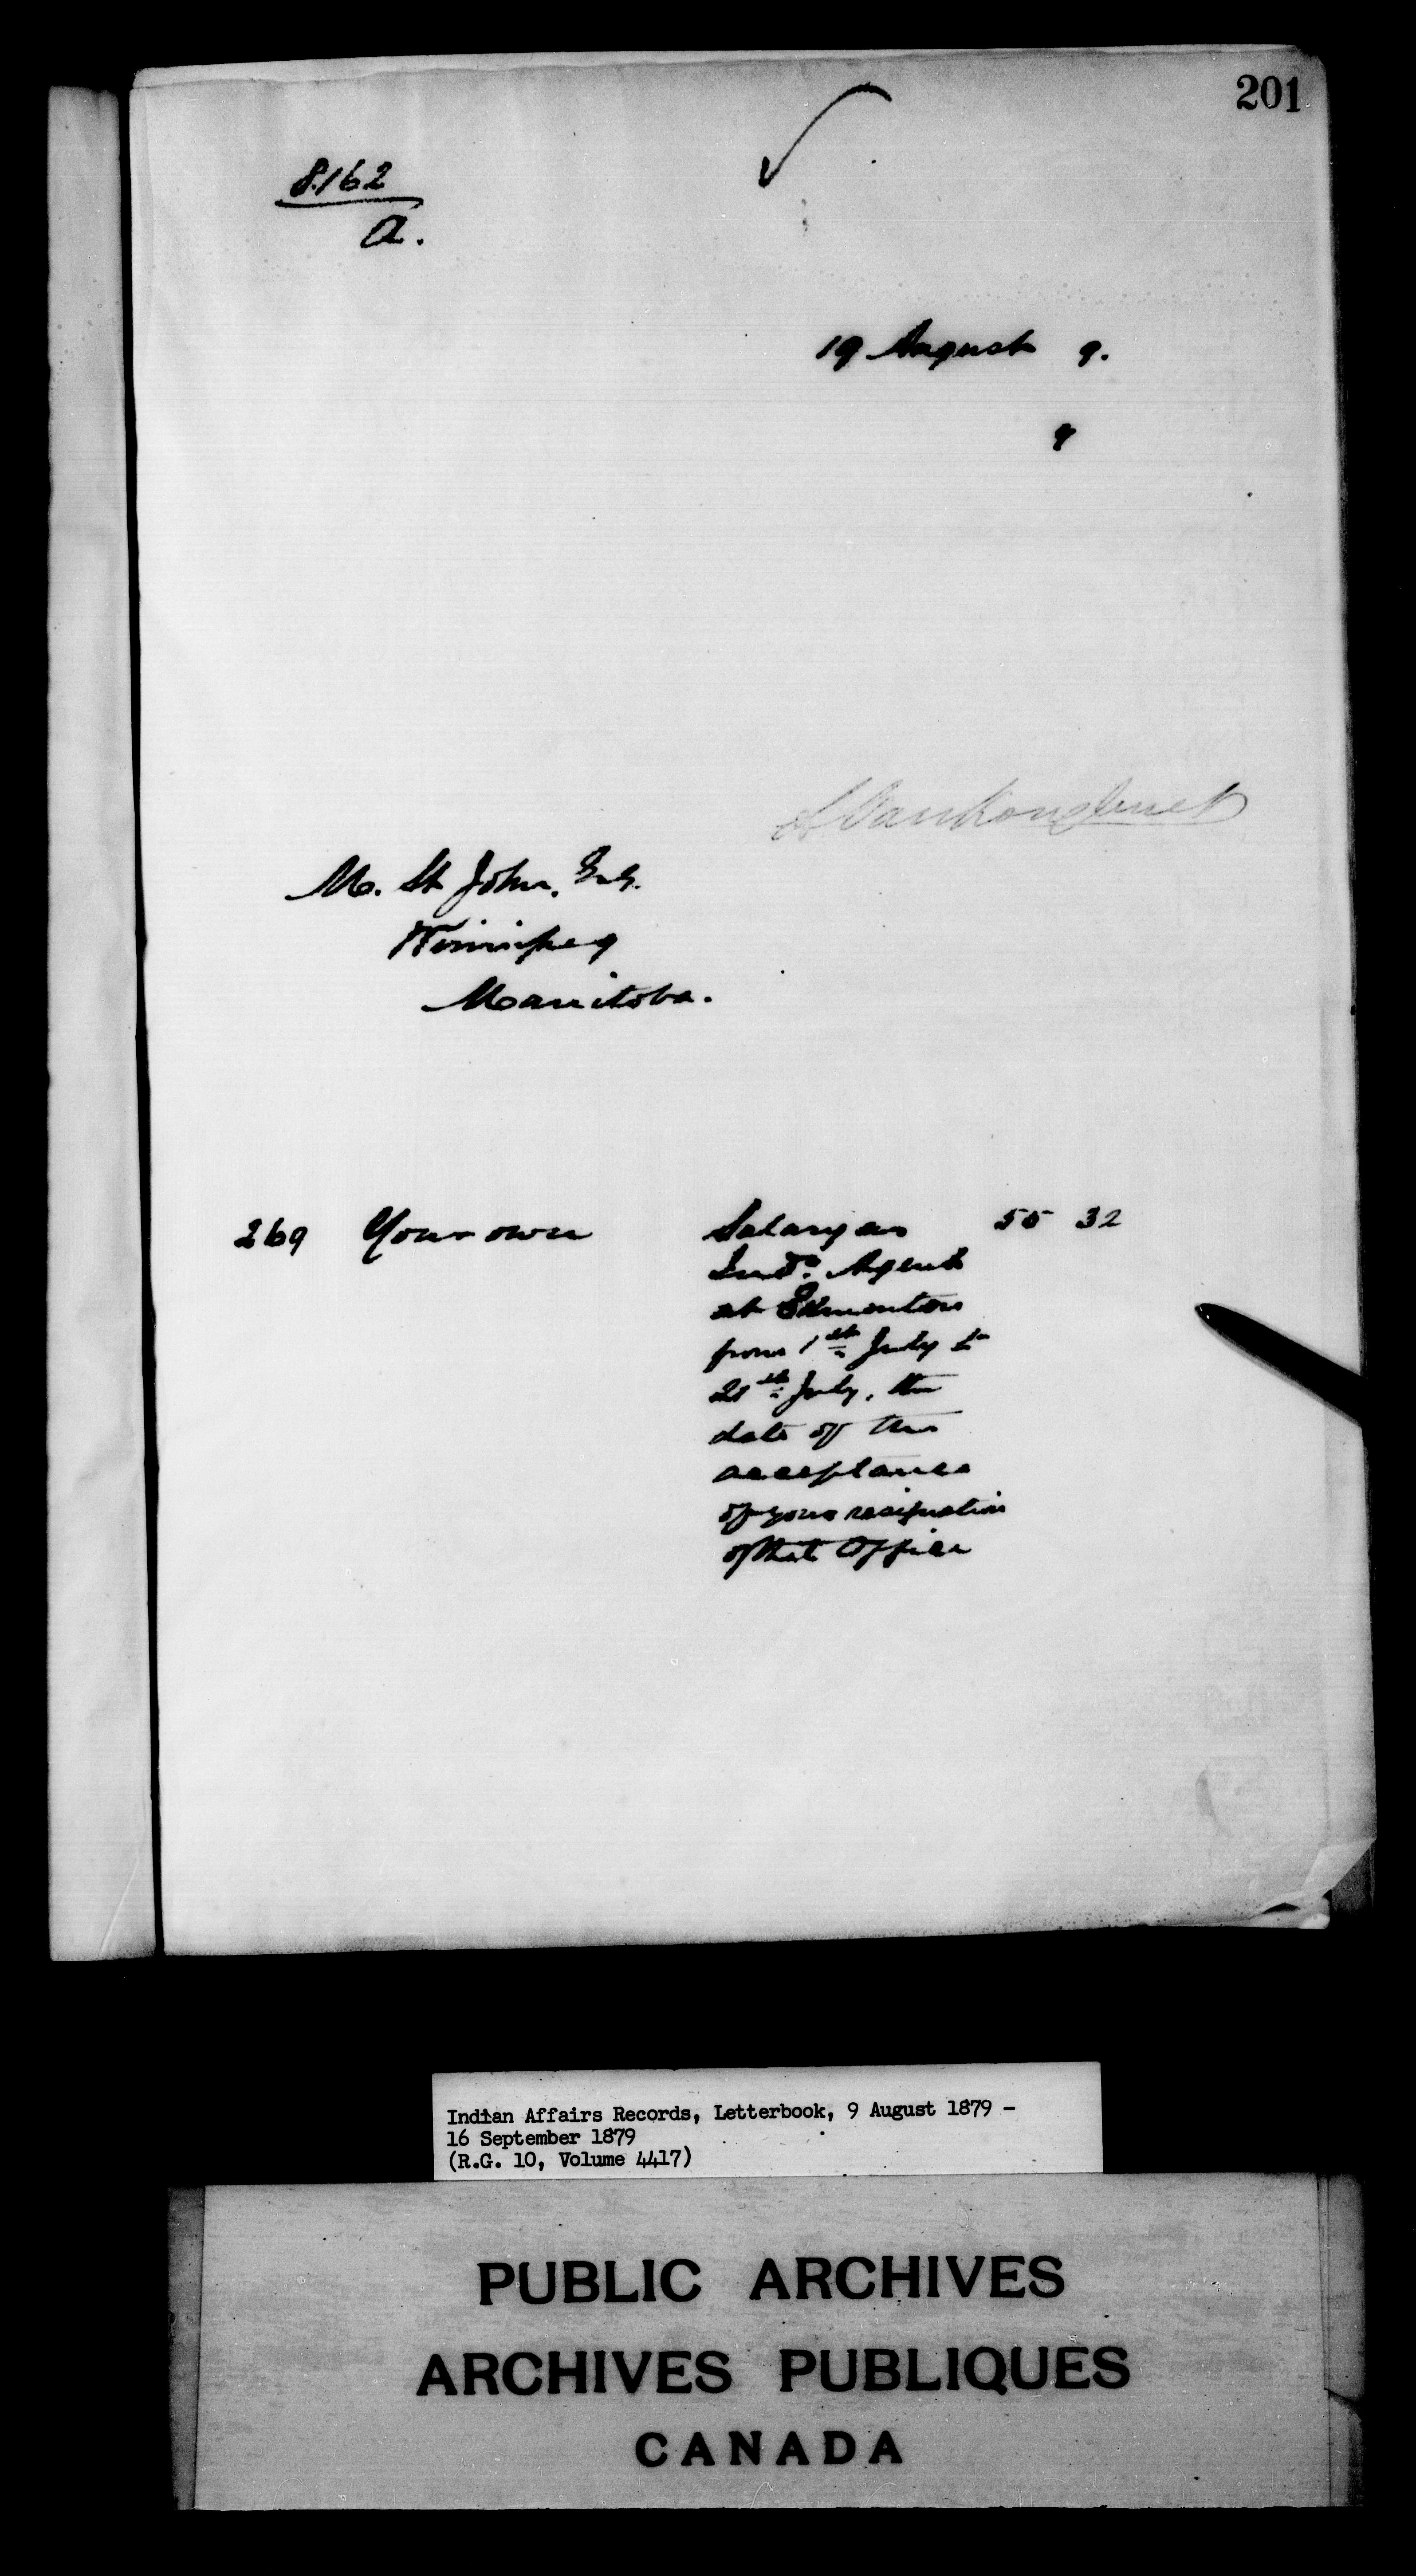 201
8162
A.
19 August 9.
9
A Vankoughnet
M. St John, Esq.
Winnipeg
Manitoba.
269 Your own Salary as 55 32
Ind.n Agent
at Edmonton
from 1st July to
21st July, the
date of the
acceptance
of your resignation
of that Office
Indian Affairs Records, Letterbook, 9 August 1879 -
16 September 1879
(R.G. 10, Volume 4417)
PUBLIC ARCHIVES
ARCHIVES PUBLIQUES
CANADA